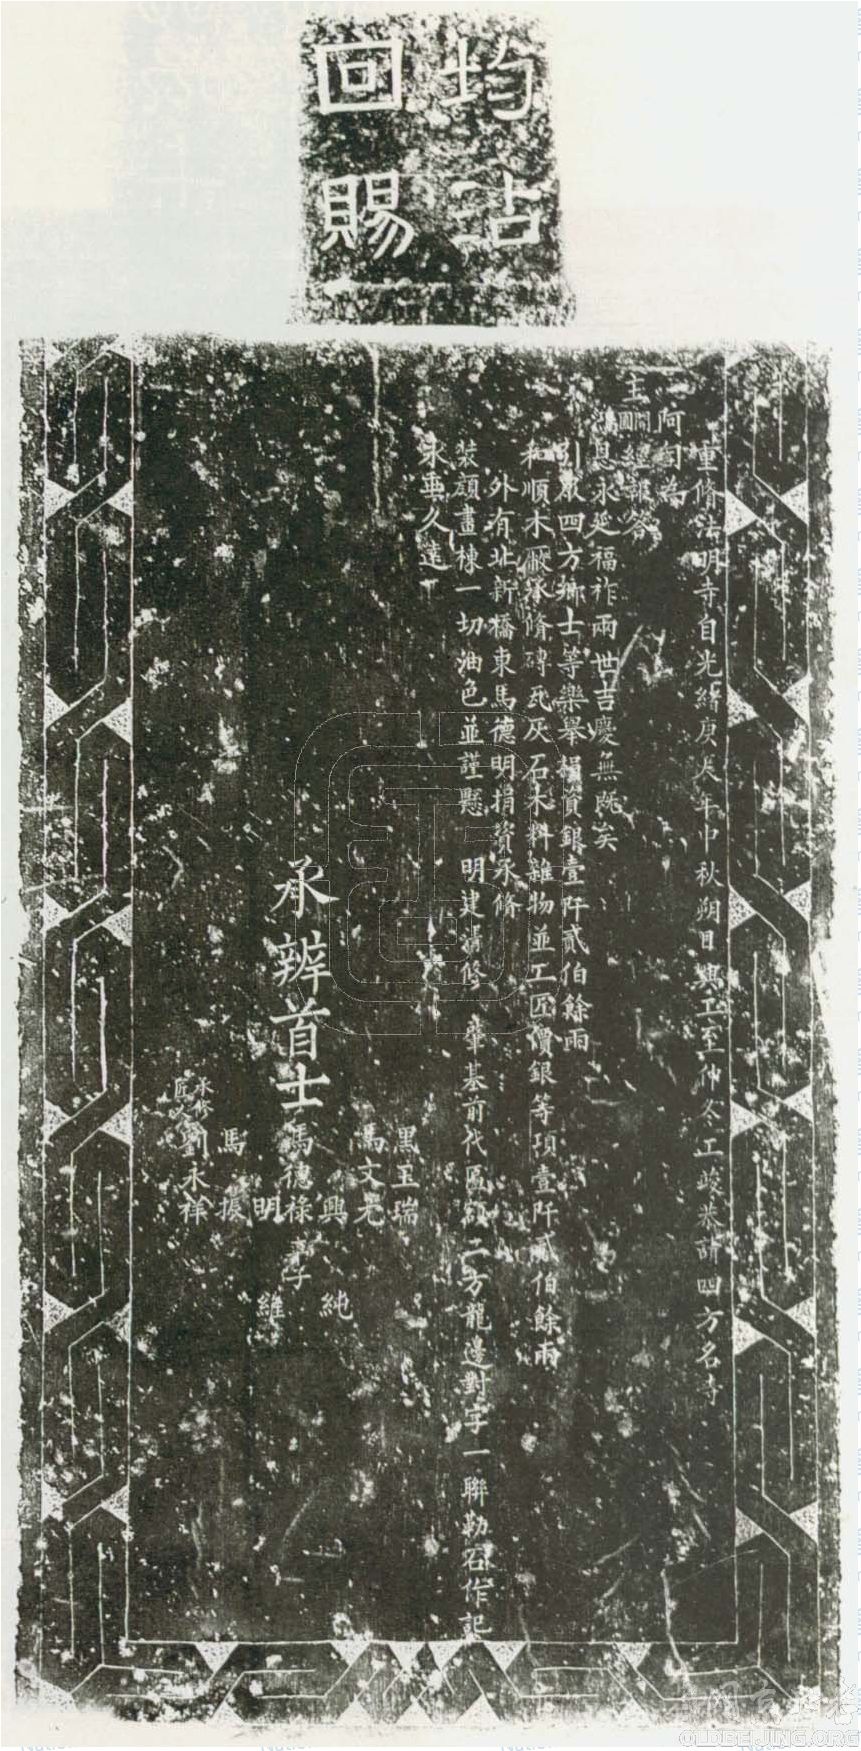 均沾
回賜
重脩法明寺自光緒庚辰年中秋朔日興工至仲冬工竣恭請四方名寺
阿訇為
主開圓經報答
鴻恩永延福祚兩世吉慶無既矣
引眾四方鄉士等樂舉捐資銀壹阡貳伯餘兩
和順木厰承脩磚瓦灰石木料雜物並工匠價銀等項壹阡貳伯餘兩
外有北新橋東馬德明捐資承脩
裝顏畫棟一切油色並謹懸 明建清修 華基前代匾額二方龍邊對字一聯勒石作記
永垂久遠
承辨首士
黑玉瑞
馬文光
興 純
馬德祿 子
明 維
馬 振
承修匠人劉永祥
OLDBEIJING.ORG